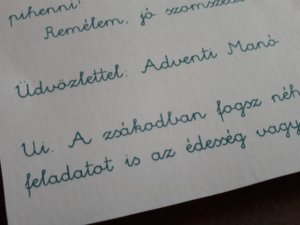 pihenni!
Remélem, jó
Üdvözlettel: Adventi Manó
Ui. A zsákodban fogsz
feladatot is az édesség vagy